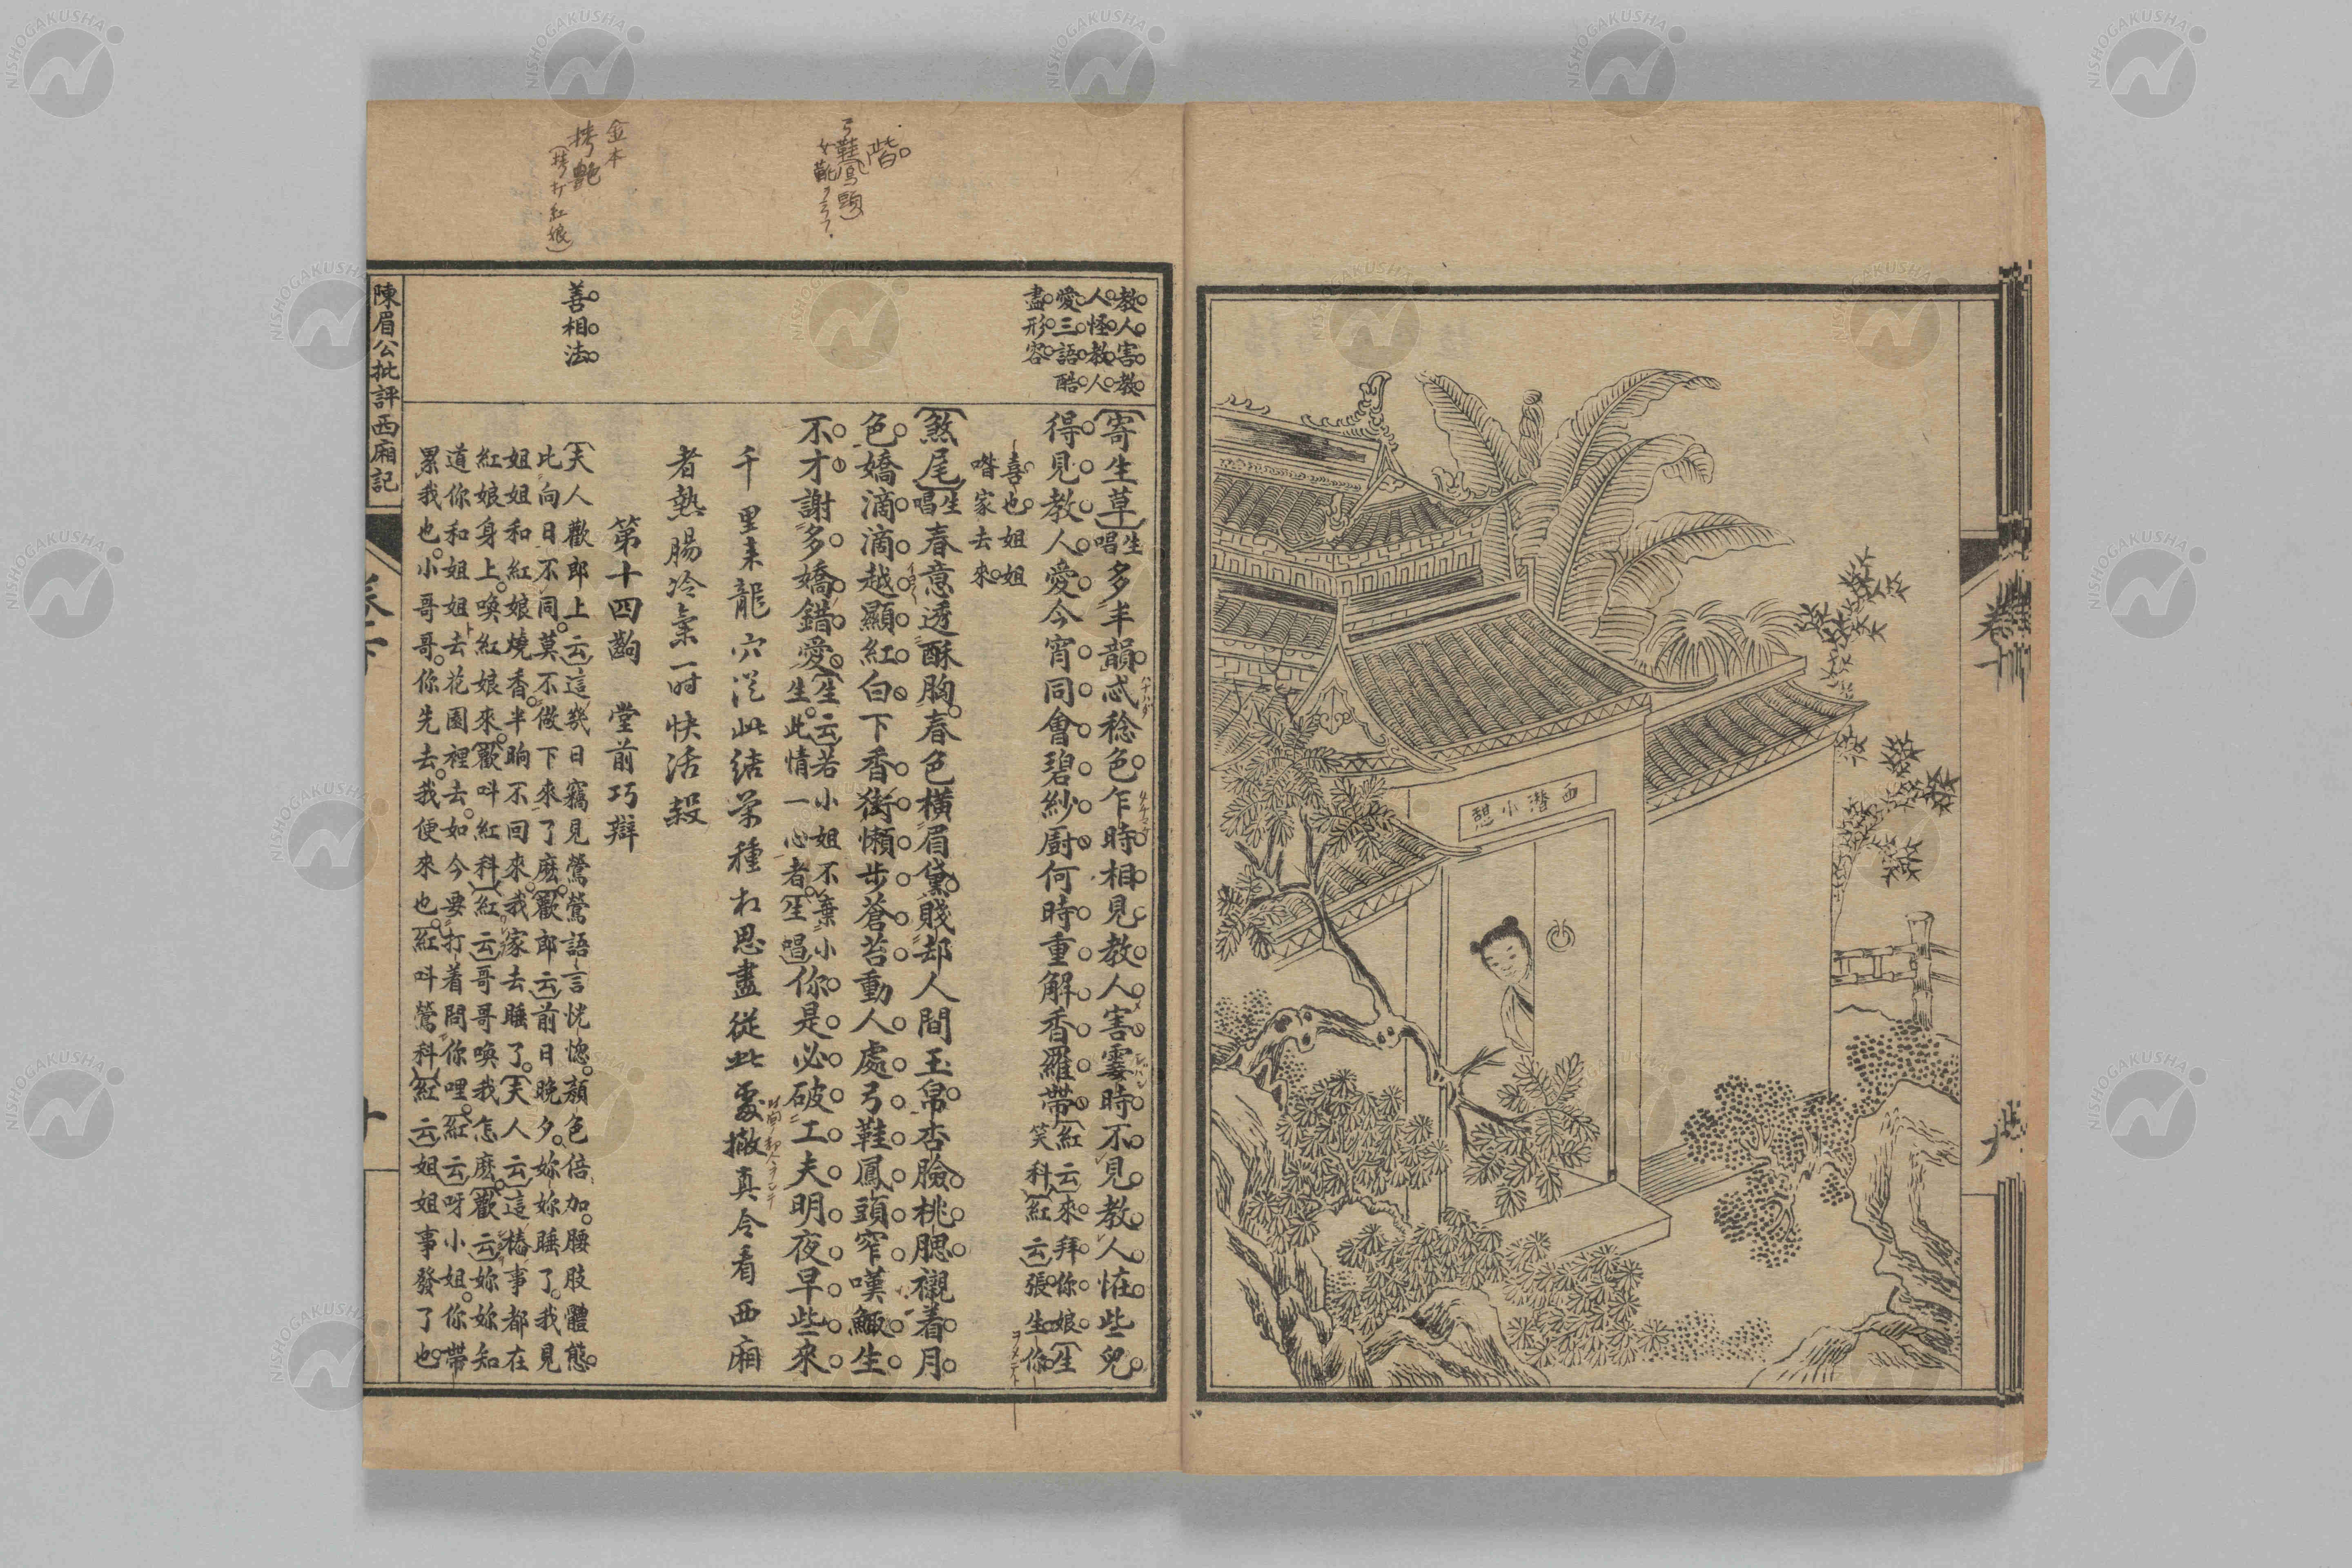 西潛小憩
卷下
教人害教
人怪教人
愛三語酷
盡形容
善相法
階
弓鞋(鳳頭)
金本
拷艷
(拷打紅娘)
【寄生草】生唱多丰韻忒稔色乍時相見教人害霎時不見教人怪些兒
得見教人愛今宵同會碧紗厨何時重解香羅帶(紅云)來拜你娘(生
笑科)(紅云)張生你
喜也姐姐
喒家去來
【煞尾】生唱春意透酥胸春色橫眉黛賤却人間玉帛杏臉桃腮襯着月
色嬌滴滴越顯紅白下香街懶步蒼苔動人處弓鞋鳳頭窄嘆鯫生
不才謝多嬌錯愛(生云)若小姐不棄小
生此情一心者(生唱)你是必破工夫明夜早些來
千里來龍穴從此結案種相思盡從此處撤真令看西廂
者熱腸冷氣一時快活殺
第十四齣 堂前巧辯
(夫人歡郎上云)這幾日竊見鶯鶯語言恍惚顏色倍加腰肢體態
比向日不同莫不做下來了麽(歡郎云)前日晚夕妳妳睡了我見
姐姐和紅娘燒香半晌不回來我家去睡了(夫人云)這樁事都在
紅娘身上喚紅娘來(歡叫紅科)(紅云)哥哥喚我怎麽(歡云)妳妳知
道你和姐姐去花園裡去如今要打着問你哩(紅云)呀小姐你帶
累我也小哥哥你先去我便來也(紅叫鶯科)(紅云)姐姐事發了也
陳眉公批評西廂記
卷下
NISHOGAKUSHA